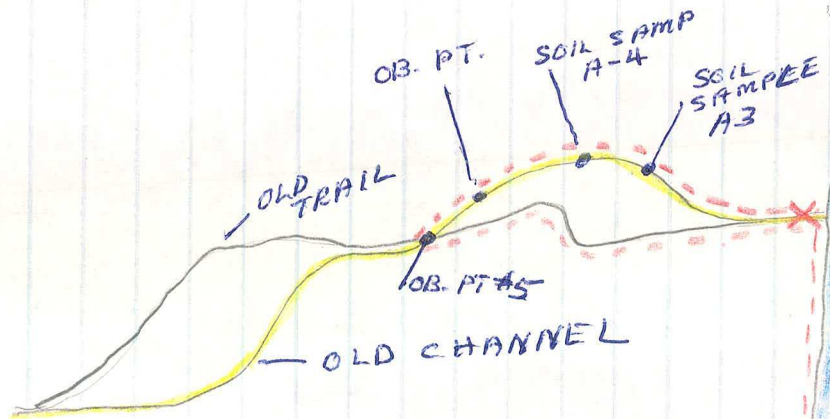 OB. PT.
SOIL SAMP
A-4
SOIL
SAMPLEE
A3
OLD
TRAIL
OB. PT #5
OLD CHANNEL